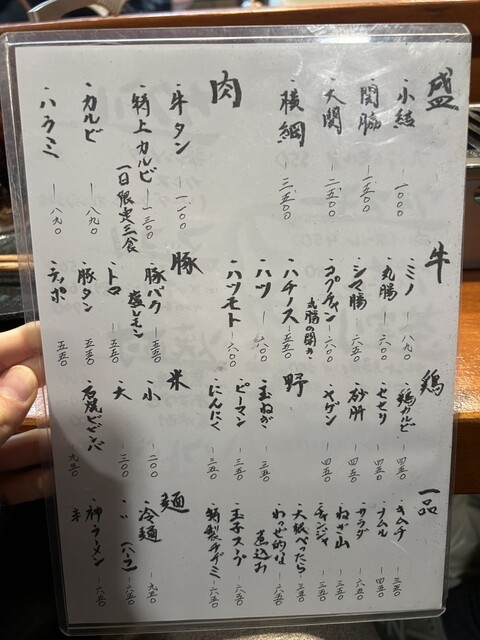 盛
・小結 一一〇〇〇
・関脇 一一五〇〇
・大関 一二、五〇〇
・横綱 三、五〇〇
肉
・牛タン 一一、一〇〇
・特上カルビ 一一三〇〇
一日限定三食
・カルビ 一八九〇
・ハラミ 一八九〇
牛
・ミノ 一八九〇
・丸腸 一六〇〇
・シマ腸 一六五〇
・コプチャン 一六〇〇
丸腸の開き
・ハチノス 一五五〇
・ハツ 一六〇〇
・ハツモト 一六〇〇
豚
・豚バク 一五五〇
塩レモン
・トマ 一五五〇
・豚タン 五五〇
・テッポ 五五〇
鶏
・鶏カルビ 一四五〇
・セセリ 一四五〇
・砂肝 一四五〇
・ヤゲン 一四五〇
野
・玉ねぎ 一三五〇
・ピーマン 一三五〇
・にんにく 一三五〇
米
・小 一二〇〇
・大 一三〇〇
・石焼ビビンバ 九五〇
一品
・キムチ 一三五〇
・ナムル 一四五〇
・サラダ 一六五〇
・ねぎ山 一三五〇
・チャンジャ 一三五〇
・大根べったら 一三五〇
・わっぜぇ的な煮込み 一六五〇
・玉子スープ 一六五〇
・特製チヂミ 一六五〇
麺
・冷麺 一九五〇
・〃(ハーフ) 一六五〇
・神ラーメン 一六五〇
辛